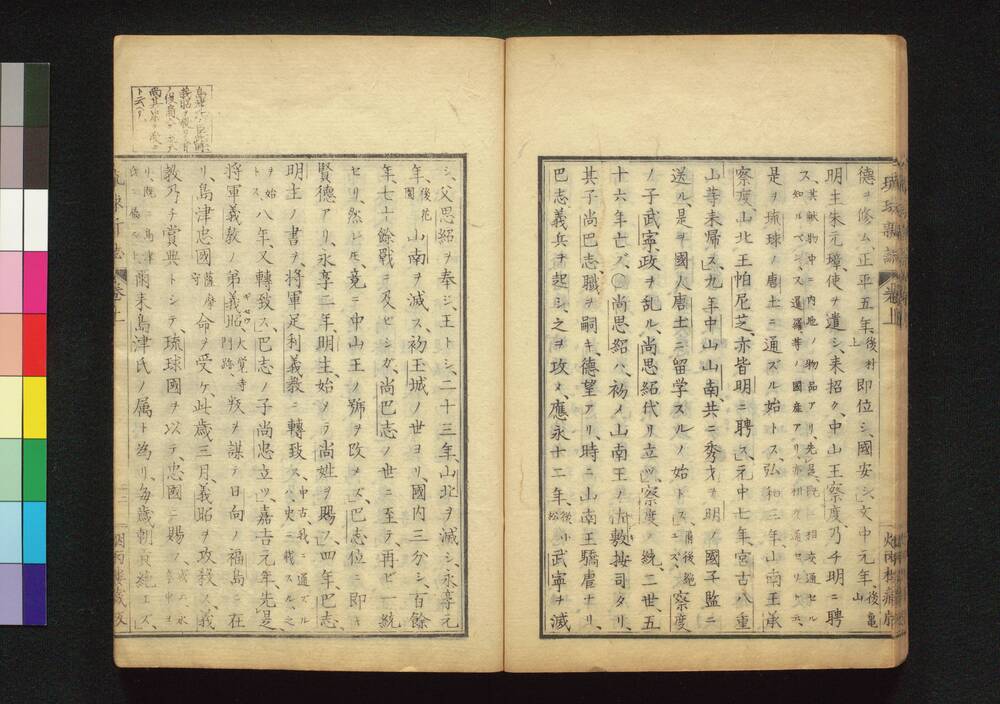 德ヲ修ム、正平五年、後村上即位シ、國安シ、文中元年、後亀山
明主朱元璋使ヲ遣シ、来招ク、中山王察度乃チ明ニ聘
ス、其献物中ニ内地ノ物品アリ、先是既ニ相交通セル知ルベシ
是ヲ琉球ノ唐土ニ通ズル始トス、弘和三年山南王承
察度山北王帕尼芝、亦皆明ニ聘ス、元中七年、宮古八重
山等来帰ス、九年中山山南共ニ秀才ヲ明ノ國子監ニ
送ル、是ヲ國人唐土ニ留学スルノ始トス、察度
ノ子武寧政ヲ乱ル、尚思紹代リ立ツ、察度ノ統二世、五
十六年亡ズ、〇尚思紹ハ、初メ山南王ノ按司タリ、
其子尚巴志職ヲ嗣キ、德望アリ、時ニ山南王驕虐ナリ、
巴志義兵ヲ起シ、之ヲ攻メ、應永十二年、後小松武寧ヲ滅
シ、父思紹ヲ奉シ、王トシ、二十三年、山北ヲ滅シ、永享元
年、後花園山南ヲ滅ス、初玉城ノ世ヨリ、國内三分シ、百餘
年、七十餘戦ニ及ビシガ、尚巴志ノ世ニ至テ、再ビ一統
セリ、然ヒモ、竟ニ中山王ノ號ヲ改メズ、巴志位ニ即キ
賢德アリ、永享二年、明主始メテ尚姓ヲ賜フ、四年、巴志
明主ノ書ヲ、将軍足利義教ニ轉致ス、中古我ニ通ズル史ニ載スル
ヲ始トス、八年、又轉致ス、巴志ノ子尚忠立ツ、嘉吉元年、先是
将軍義教ノ弟義昭、大覺寺門跡、叛ヲ謀テ日向ノ福島ニ在
リ、島津忠國薩摩守命ヲ受ケ、此歳三月、義昭ヲ攻殺ス、義
教乃チ賞典トシテ、琉球國ヲ以テ、忠國ニ賜ノ
爾来島津氏ノ属ト為リ、毎歳朝貢絶エズ、